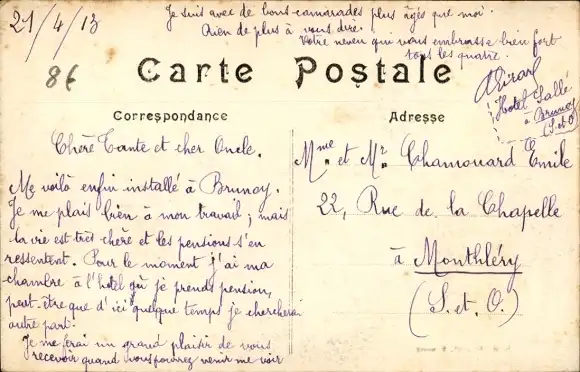 21/4/13
Je suis avec de bons camarades plus âgés que moi.
Rien de plus à vous dire.
Votre neveu qui vous embrasse bien fort
tous les quatre.
86
Carte Postale
Hotel Sallé
à Brunoy
(S.et O)
Correspondance
Adresse
Chère Tante et cher Oncle.
Me voilà enfin installé à Brunoy.
Je me plais bien à mon travail ; mais
la vie est très chère et les pensions s'en
ressentent. Pour le moment j'ai ma
chambre à l'hotel où je prends pension,
peut-être que d'ici quelque temps je chercherai
autre part.
Je me ferai un grand plaisir de vous
recevoir quand vous pourrez venir me voir
Mme et Mr Chamouard Emile
22, Rue de la Chapelle
à Monthléry
(S. et. O.)